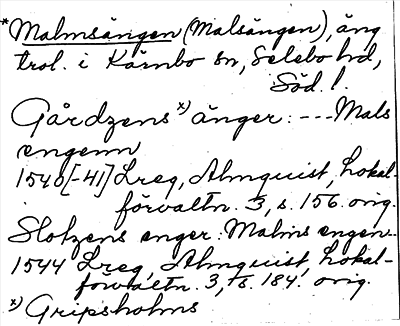 *Malmsängen (Malsängen), äng
trol. i Kärnbo sn, Selebo hd,
Söd. l.
Gårdzens x) änger: --- Mals
engenn
1540[-41] Lreg, Almquist, Lokal-
förvaltn. 3, s. 156. orig.
Slotzens enger: Malms engen.
1544 Lreg, Almquist, Lokal-
förvaltn. 3, s. 184. orig.
x) Gripsholms